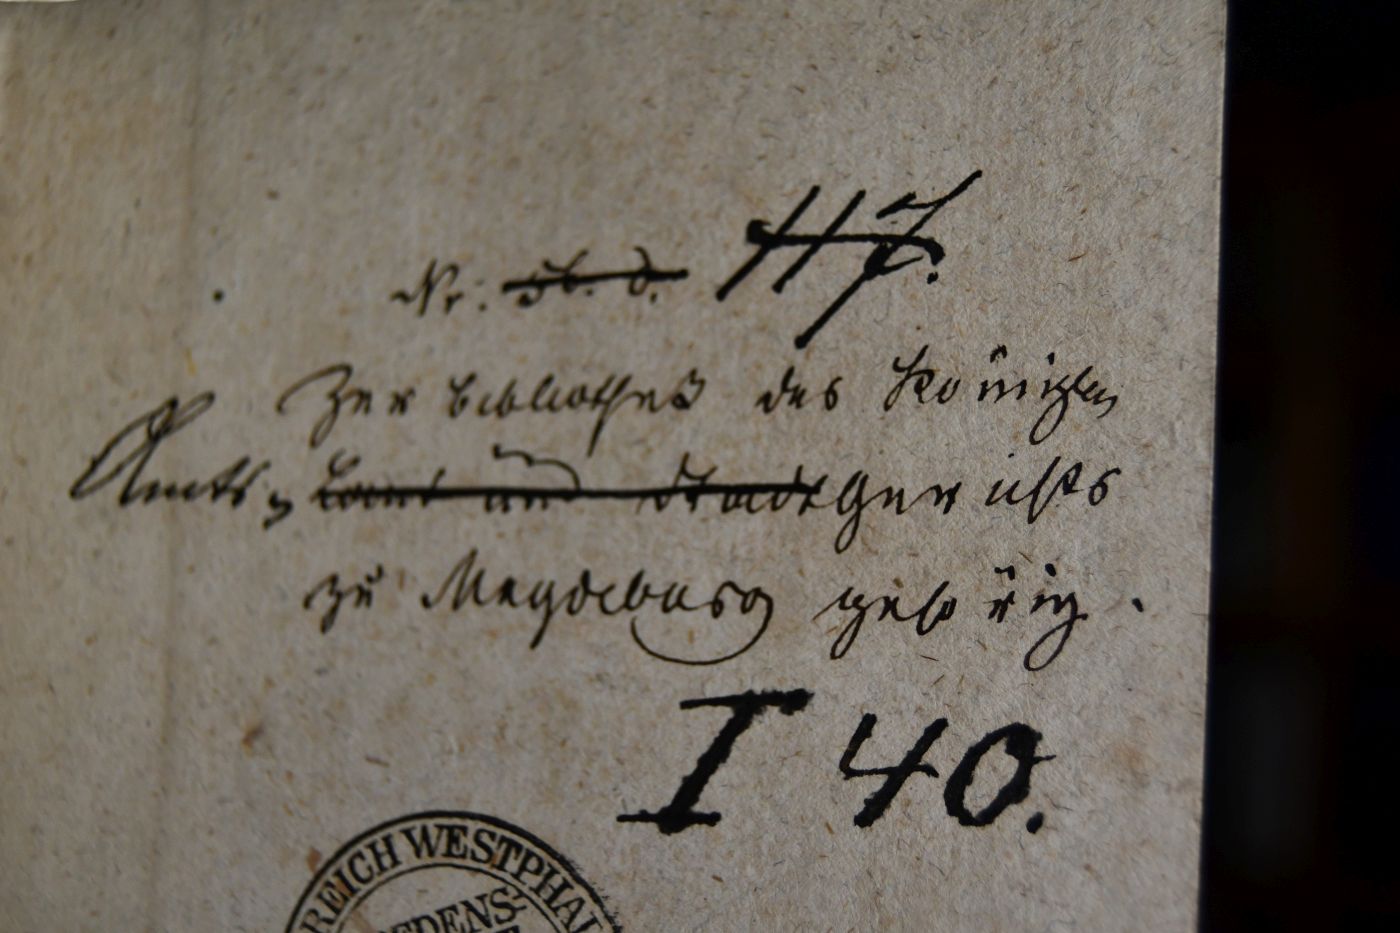 Nr: 56. d. 117.
Zur Bibliothek des Königlen
Amts- Land und Stadt Gerichts
zu Magdeburg gehörig.
I 40.
REICH WESTPHAL
EDENS-